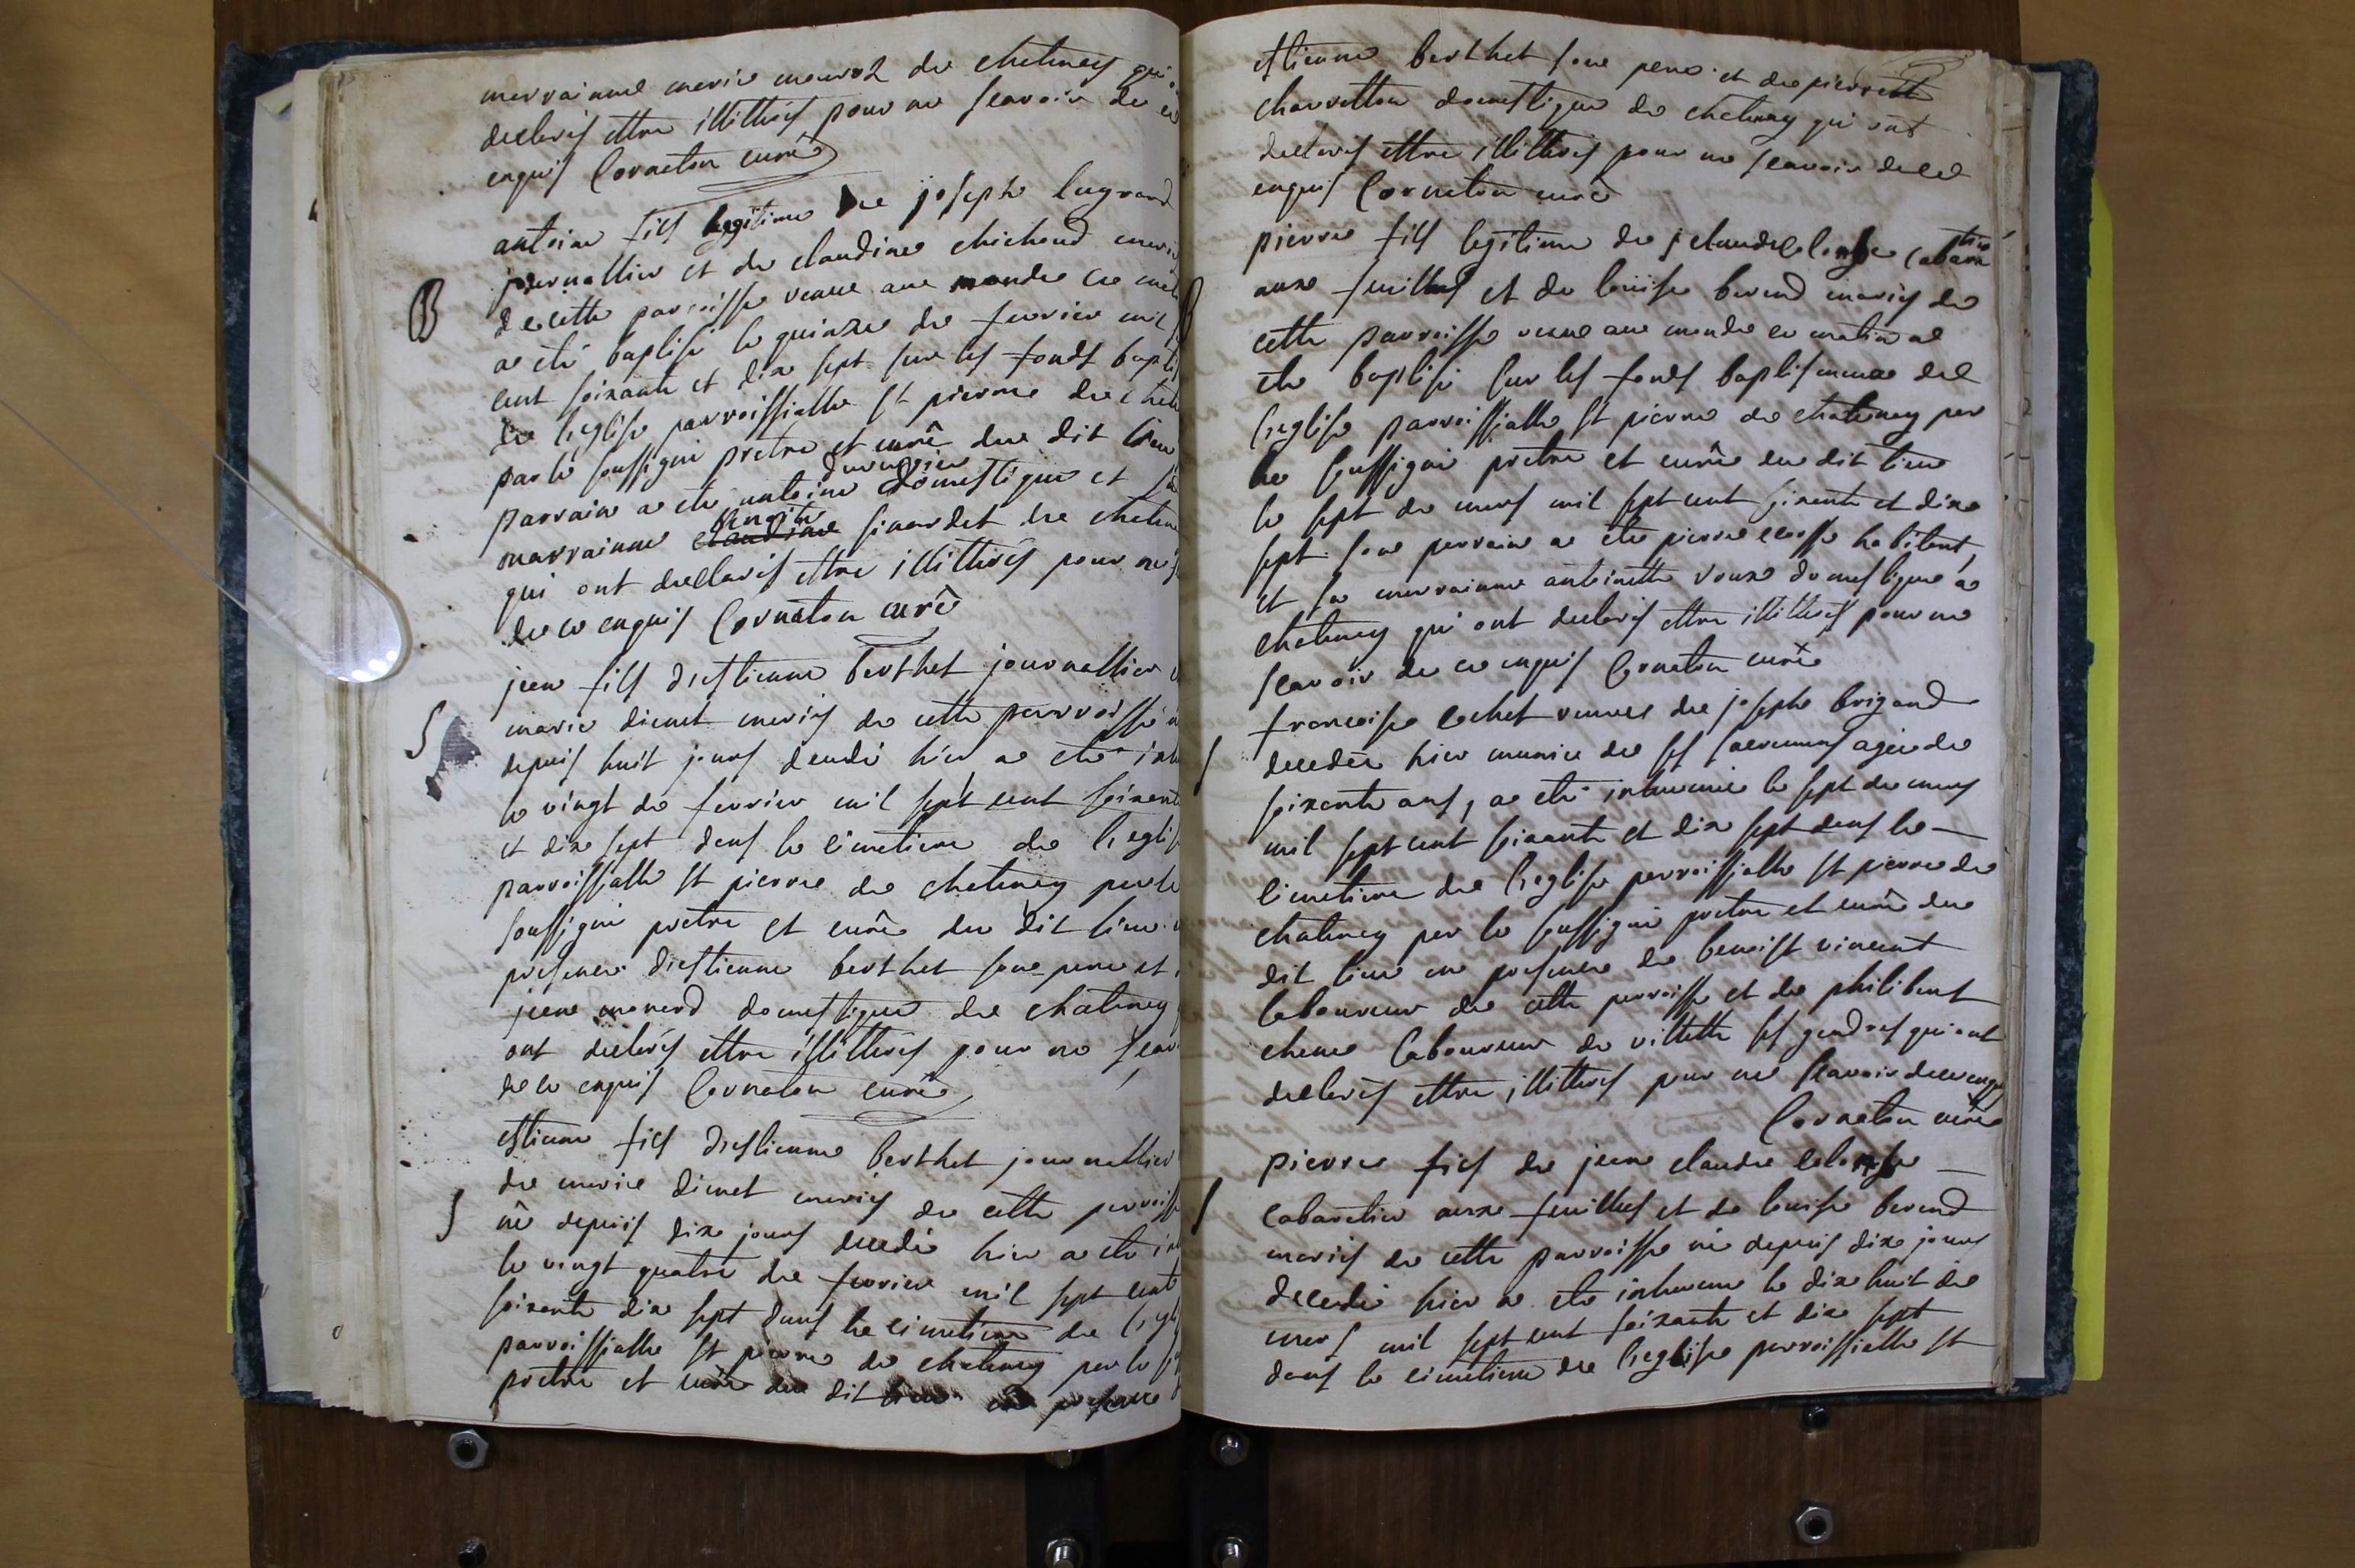 marrainne marie de chatenay qui
declarés ettre illittrés pour ne scavoir de ce
enquis Cornaton curé
antoine fils legitime de joseph lugrand
journallier et de claudine chichoud marié
B
de cette parroisse venue aue monde ce
a été baptisé le quinze de fevrier mil
cent soixante et dix sept sur les fonds bapti
de l'eglise parroissialle st pierre de chat
par le soussigné pretre et curé due dit lieu
parrain a été antoine duverdier domestique et sa
marrainne claudine benoite sinardet de chaten
qui ont declarés ettre illittrés pour ne
de ce enquis Cornaton curé
jean fils d'estienne berthet journallier
S
marie dienet mariés de cette parroisse
depuis huit jours decedé hier a eté in
le vingt de fevrier mil sept cent soixant
et dix sept dans le cimetiere de l'eglis
parroissialle st pierre de chatenay par le
soussigné pretre et curé due dit lieu
presence d'estienne berthet sone pere et
jeane monard domestique de chatenay
ont declarés ettre illittrés pour ne scav
de ce enquis Cornaton curé
estienne fils d'estienne berthet journallier
de marie dienet mariés de cette parroiss
S
né depuis dix jours decedé hier a eté in
le vingt quatre de fevrier mil sept cent
soixante dix sept dans le cimetiere de l'egl
parroissialle st pierre de chatenay par le
pretre et curé due dit lieu en presence
estienne berthet sone pere et de pierrette
charretton domestique de chatenay qui ont
declarés ettre illittrés pour ne scavoir de ce
enquis Cornaton curé
pierre fils legitime de j claude cabaretier
B
auxe feuilles et de louise berend mariés de
cette parroisse venue aue monde ce matin a
eté baptisé sur les fonds baptismaux de
l'eglise parroissialle st pierre de chatenay par
le soussigné pretre et curé due dit lieu
le sept de mars mil sept cent soixante et dixe
sept sone parrain a eté pierre habitant,
et sa marrainne antoinette vouxe domestique a
chatenay qui ont declarés ettre illittrés pour ne
scavoir de ce enquis Cornaton curé
francoise cochet veuve de joseph brigand
S
decedée hier munie de ses sacremens agée de
soixante ans, a eté inhumée le sept de mars
mil sept cent soixante et dix sept dans le
cimetiere de l'eglise parroissialle st pierre de
chatenay par le soussigné pretre et curé due
dit lieu en presence de benoist vincent
laboureur de cette parroisse et de philibert
chene laboureur de villette ses gendres qui ont
declarés ettre illittrés pour ne scavoir de ce enquis
Cornaton curé
pierre fils de jean claude
S
cabaretier auxe feuilles et de louise berend
mariés de cette parroisse né depuis dixe jours
decedé hier a eté inhumé le dixe huit de
mars mil sept cent soixante et dix sept
dans le cimetiere de l'eglise parroissialle st